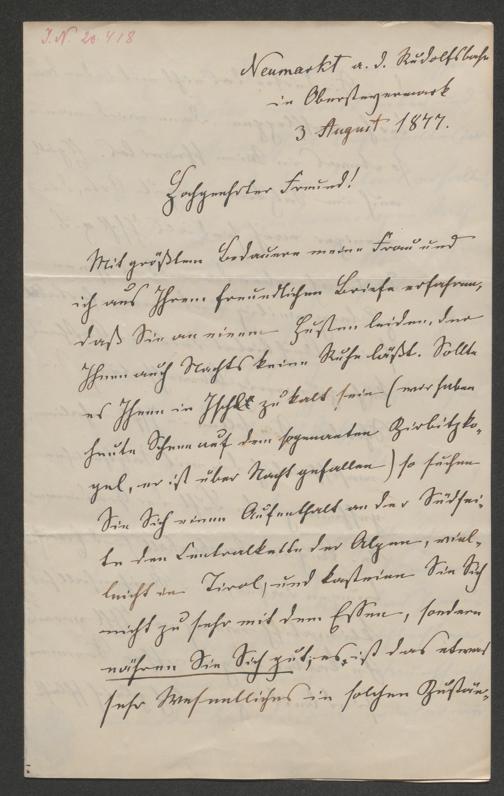 J.N. 20.418
Neumarkt a. d. Rudolfsbahn
in Obersteyermark
3 August 1877.
Hochgeehrter Freund!
Mit größtem Bedauern meine Frau und
ich aus Ihrem freundlichen Briefe erfahren,
daß Sie an einem Husten leiden, der
Ihnen auch Nachts keine Ruhe läßt. Sollte
es Ihnen in Ischl zu kalt sein (wir haben
heute Schnee auf dem sogenannten Zirbitzko-
gel, er ist über Nacht gefallen) so suchen
Sie Sich einen Aufenthalt an der Südsei-
te der Centralkette der Alpen, viel-
leicht in Tirol, und kasteien Sie Sich
nicht zu sehr mit dem Essen, sondern
nähren Sie Sich gut, es ist das etwas
sehr Wesentliches in solchen Zustän-